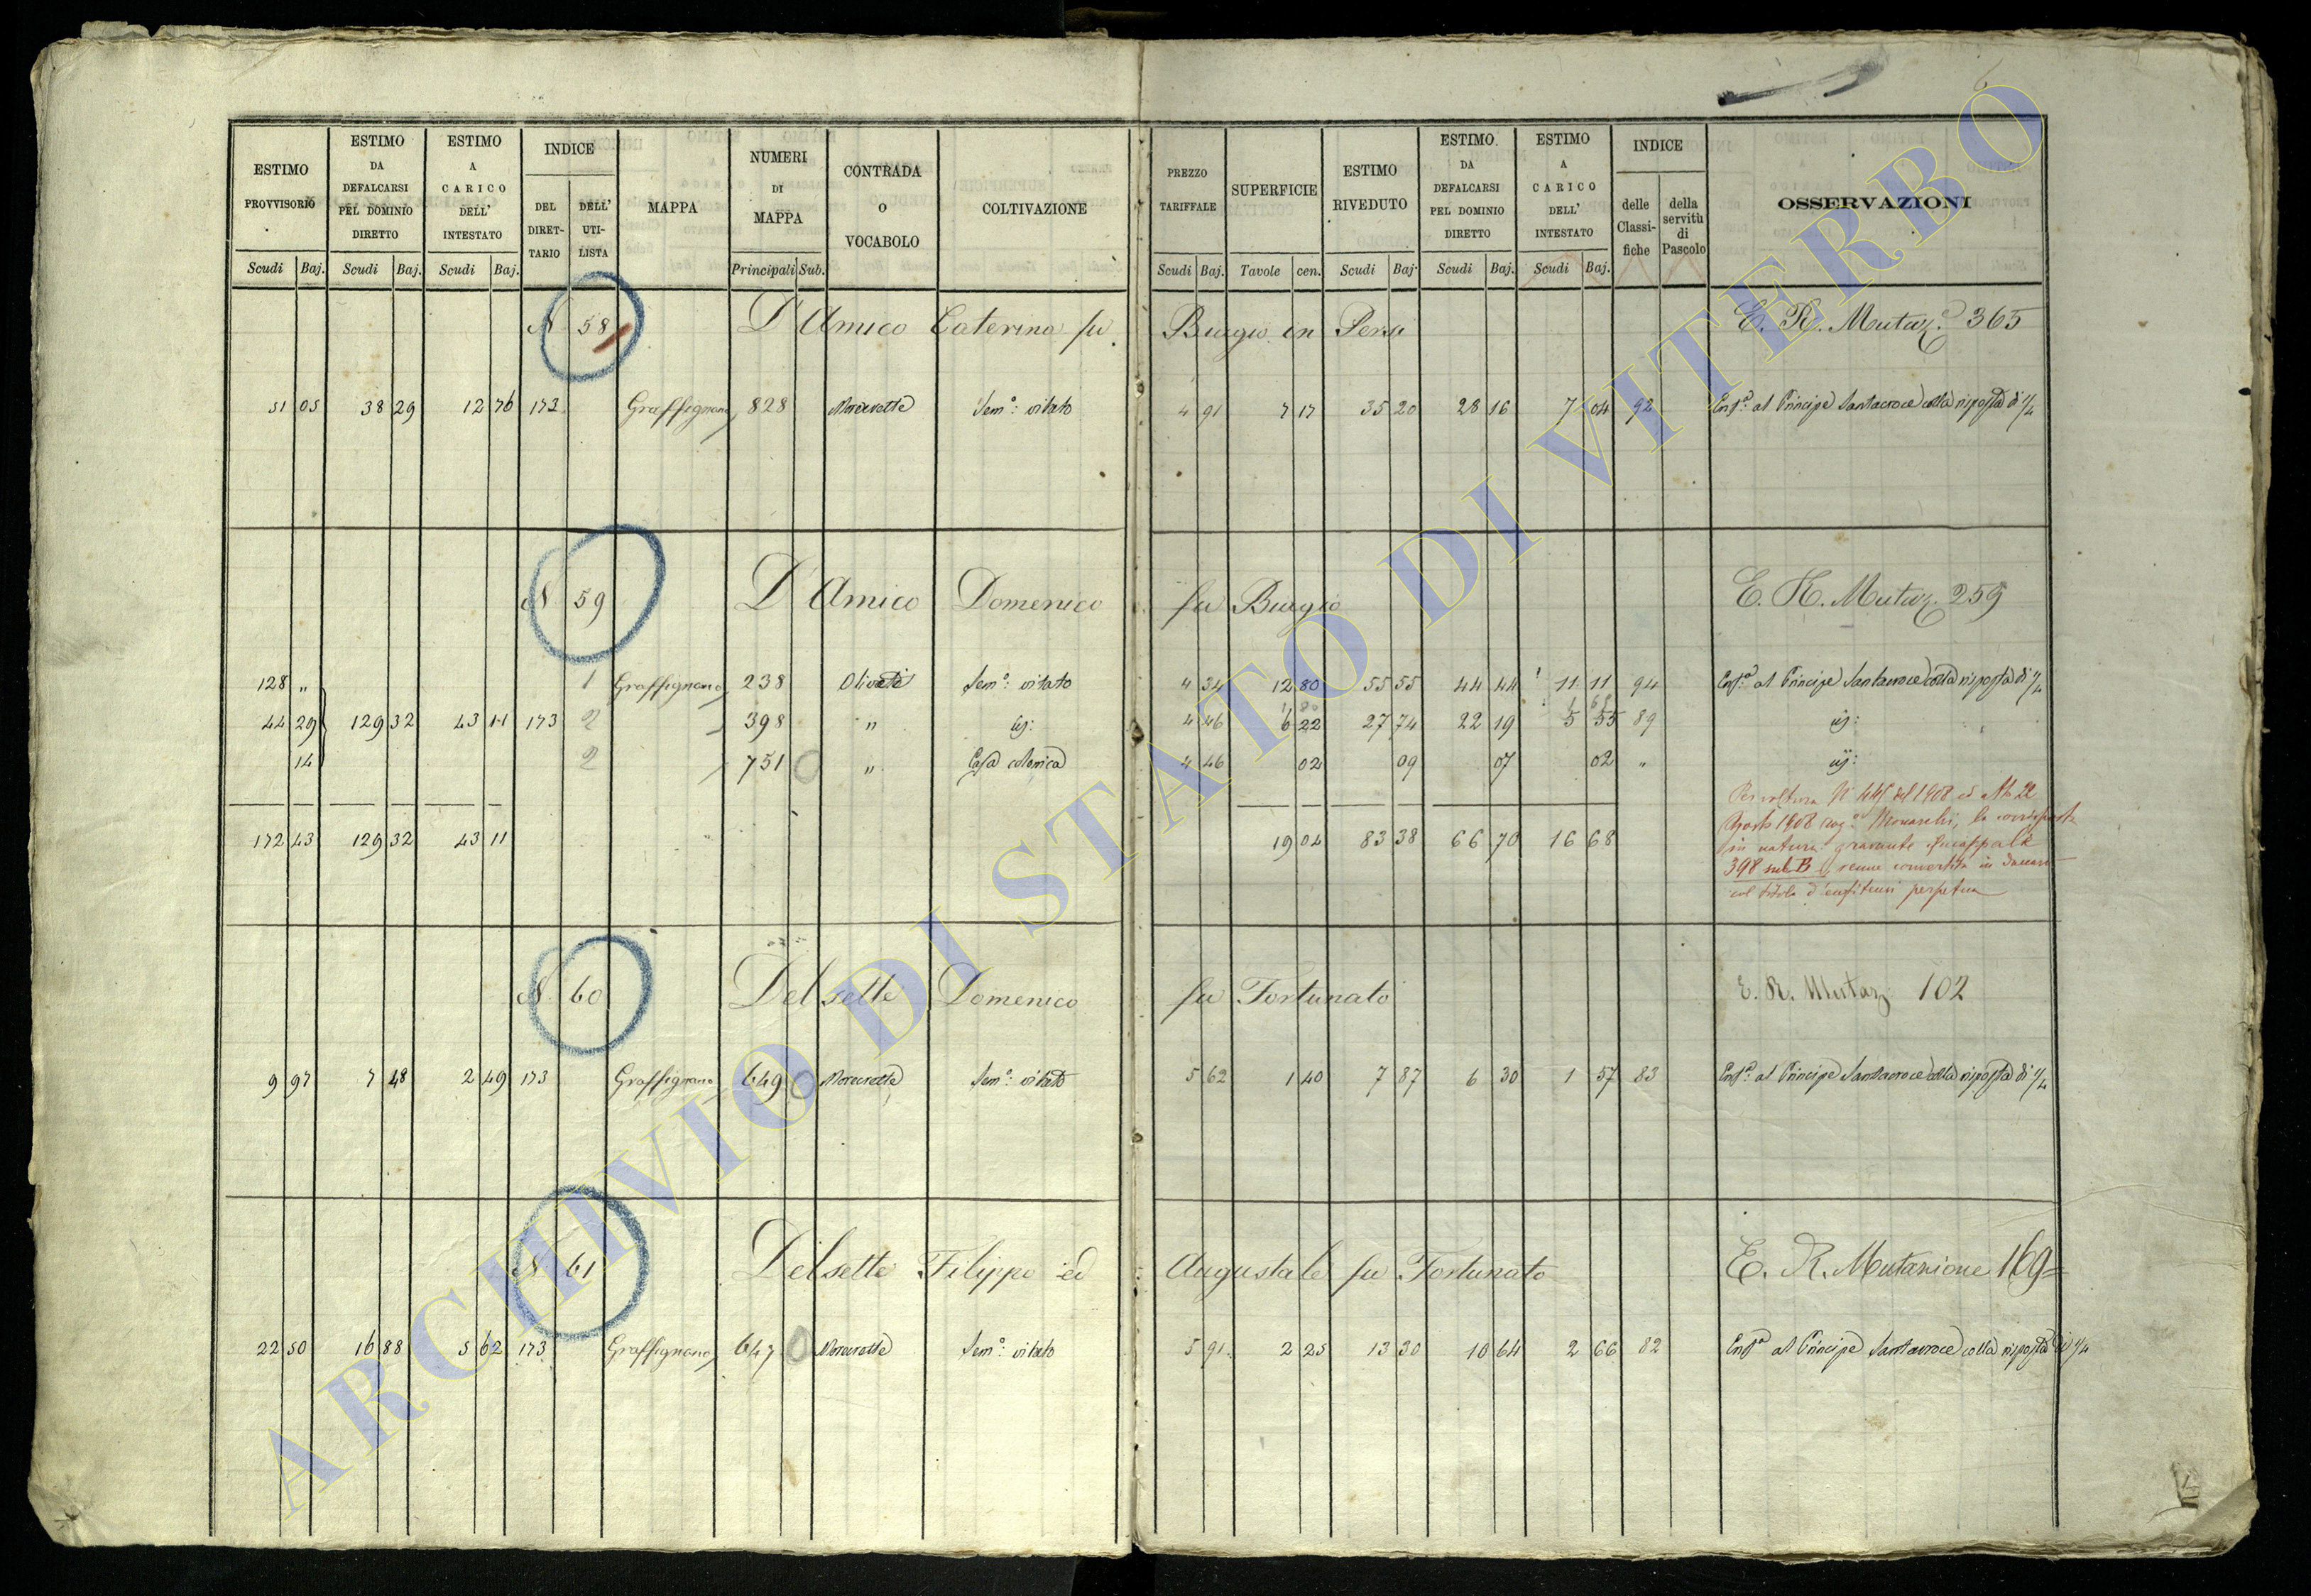 6
ESTIMO PROVVISORIO
ESTIMO DA DEFALCARSI PEL DOMINIO DIRETTO
ESTIMO A CARICO DELL' INTESTATO
INDICE
DEL DIRET-TARIO
DELL' UTI-LISTA
MAPPA
NUMERI DI MAPPA
CONTRADA O VOCABOLO
COLTIVAZIONE
PREZZO TARIFFALE
SUPERFICIE
ESTIMO RIVEDUTO
ESTIMO DA DEFALCARSI PEL DOMINIO DIRETTO
ESTIMO A CARICO DELL' INTESTATO
INDICE
delle Classi-fiche
della servitù di Pascolo
OSSERVAZIONI
Scudi Baj. Scudi Baj. Scudi Baj. Principali Sub. Scudi Baj. Tavole cen. Scudi Baj. Scudi Baj. Scudi Baj.
N 58 D'Amico Caterina fu Biagio in Persi E. R. Mutaz.e 365
51 05 38 29 12 76 173 Graffignano 828 Sem.o vitato 4 91 7 17 35 20 28 16 7 04 92 Enf.a al Principe Santacroce colla risposta di 1/4
N 59 D'Amico Domenico fu Biagio E. R. Mutaz. 259
128 „ 1 Graffignano 238 Oliveto Sem.o vitato 4 34 12 80 55 55 44 44 11 11 94 Enf.a al Principe Santacroce colla risposta di 1/4
44 29 129 32 43 11 173 2 398 „ id: 4 46 6 22 27 74 22 19 5 55 89 id:
14 2 751 „ Casa colonica 4 46 02 09 07 02 „ id:
172 43 129 32 43 11 19 04 83 38 66 70 16 68
Per voltura N° 445 del 1908 ed Att 22
Agosto 1908 la corrisposta
in natura gravante
398 sub B venne convertita in
col titolo d'enfiteusi perpetua
N 60 Delsette Domenico fu Fortunato E. R. Mutaz 102
9 97 7 48 2 49 173 Graffignano 649 Sem.o vitato 5 62 1 40 7 87 6 30 1 57 83 Enf.a al Principe Santacroce colla risposta di 1/4
N 61 Delsette Filippo ed Augustale fu Fortunato E. R. Mutazione 169
22 50 16 88 5 62 173 Graffignano 647 Sem.o vitato 5 91 2 25 13 30 10 64 2 66 82 Enf.a al Principe Santacroce colla risposta di 1/4
ARCHIVIO DI STATO DI VITERBO